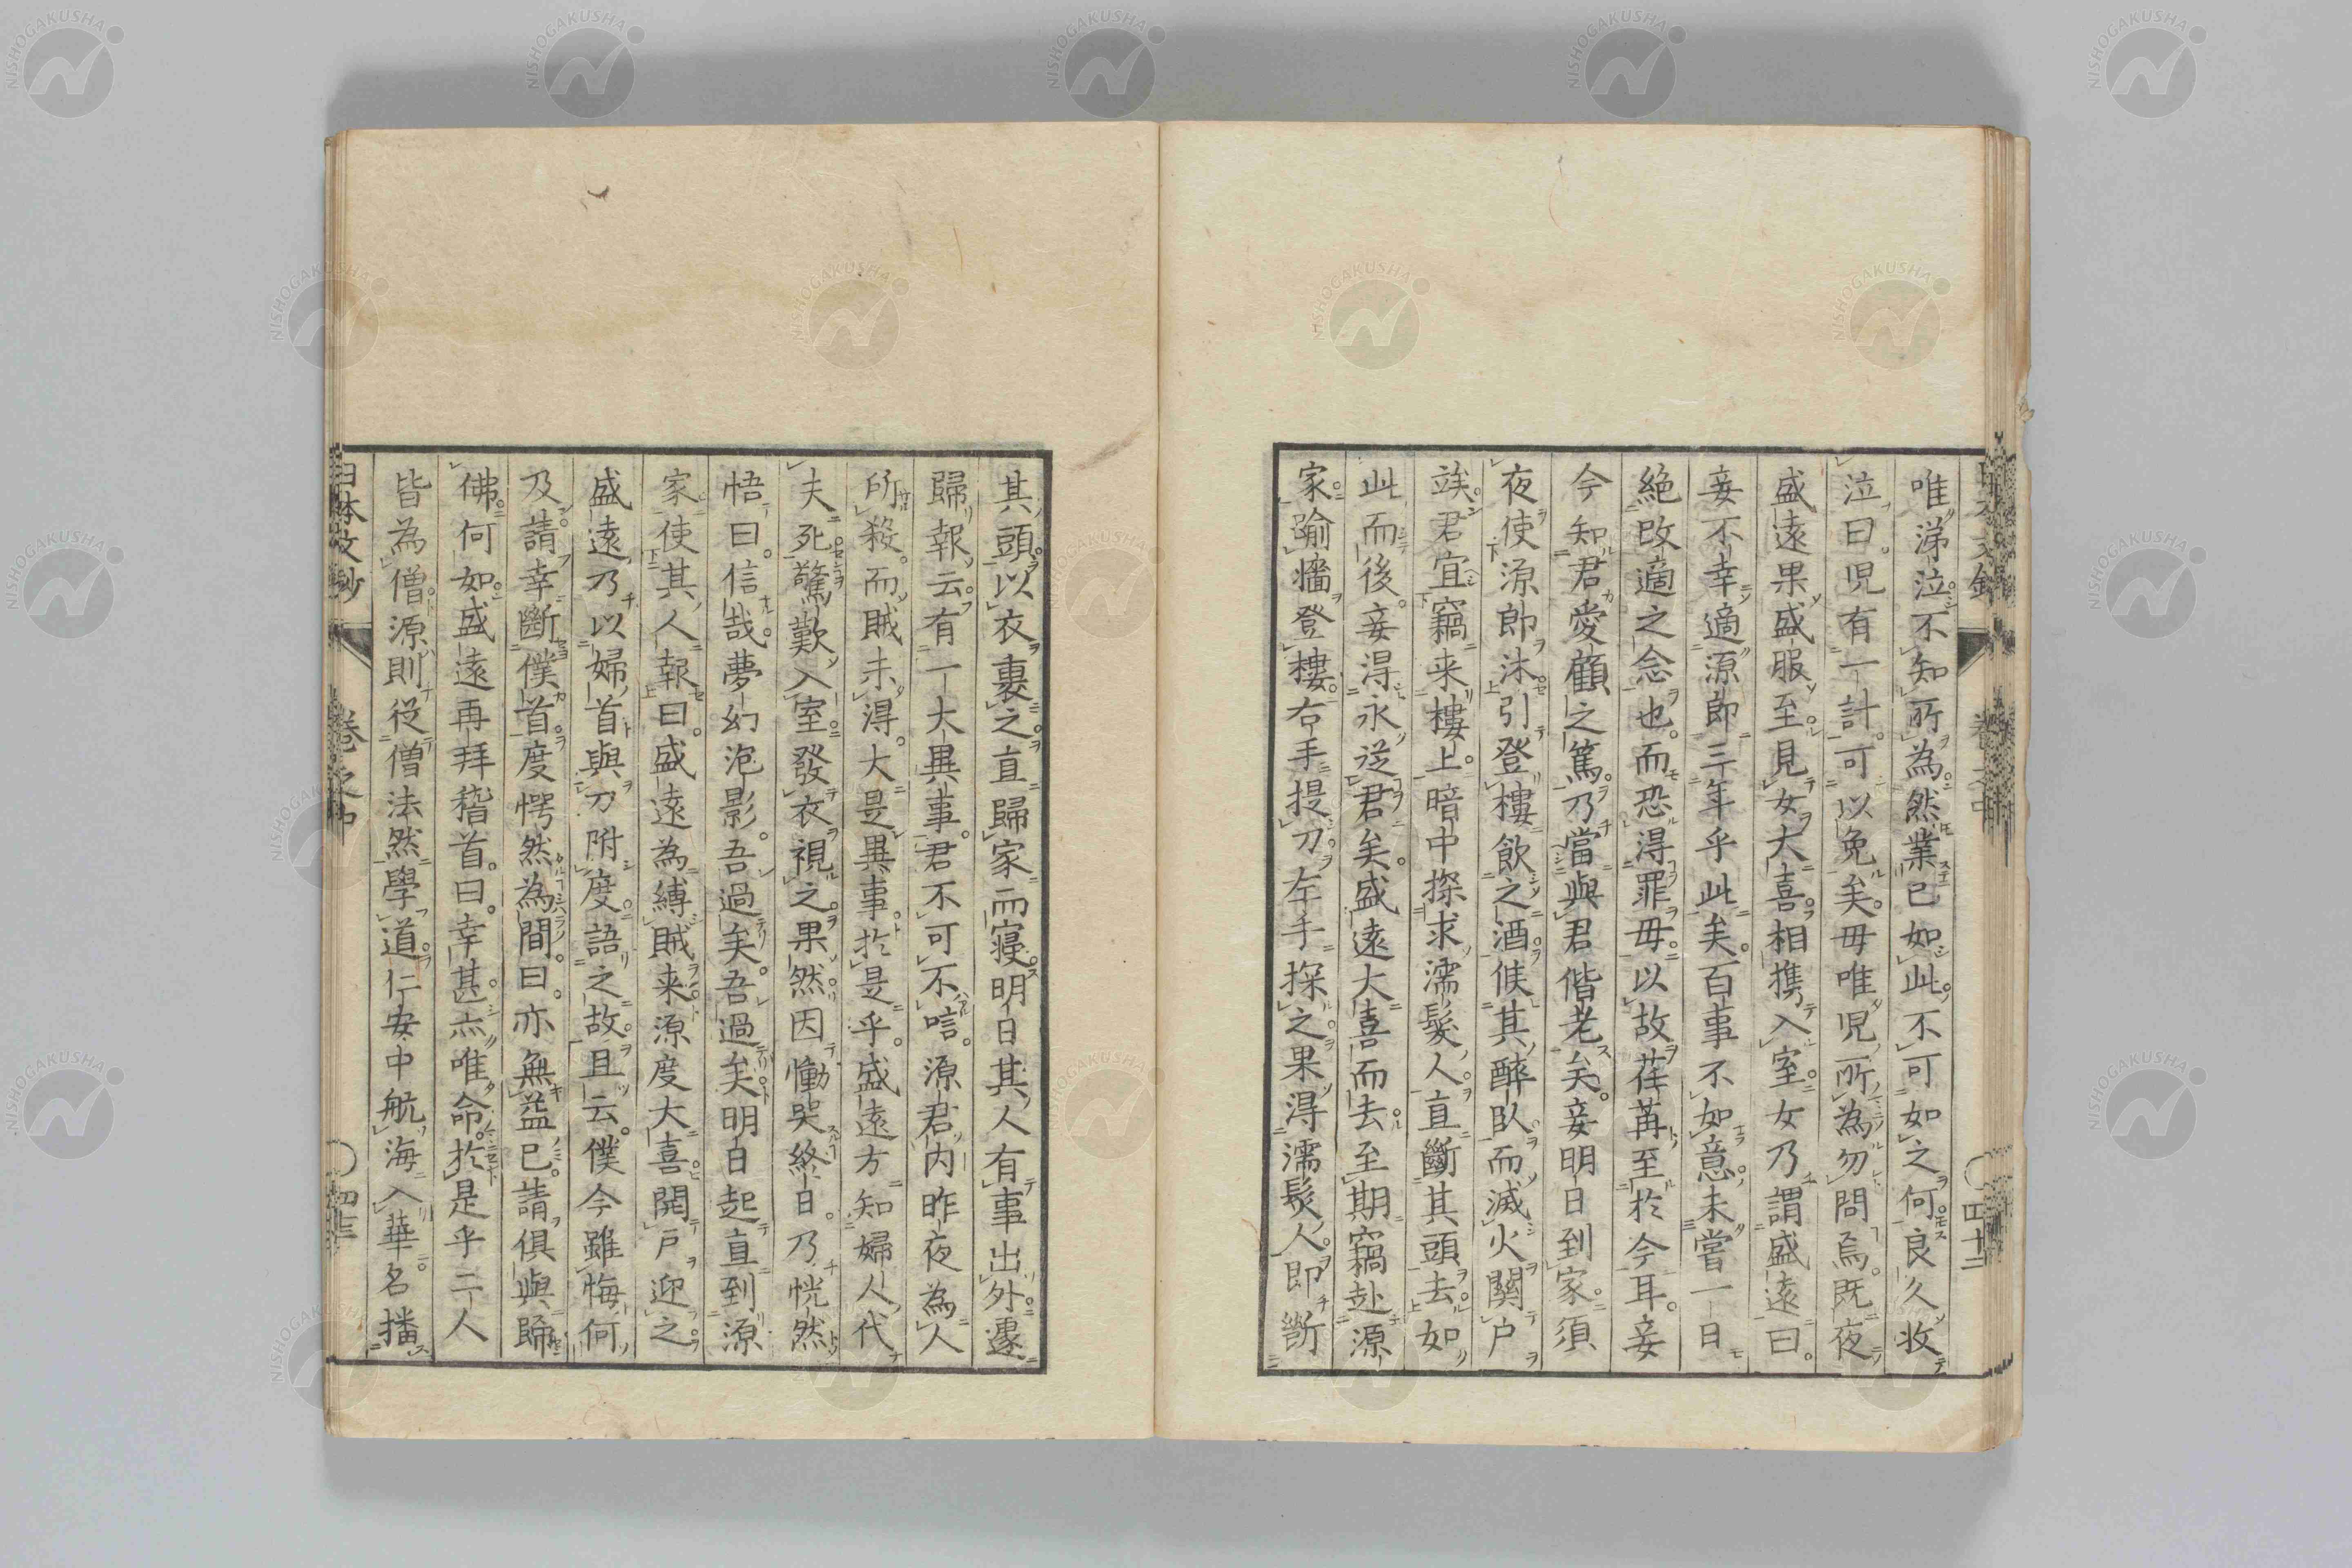 唯涕泣不知所為然業已如此不可如之何良久收
泣曰児有一計可以免矣毋唯児所為勿問焉既夜
盛遠果盛服至見女大喜相携入室女乃謂盛遠曰
妾不幸適源郎三年乎此矣百事不如意未嘗一日
絶改適之念也而恐得罪毋以故荏苒至於今耳妾
今知君愛顧之篤乃當與君偕老矣妾明日到家須
夜使源郎沐引登樓飲之酒候其醉臥而滅火闢户
竢君宜竊来樓上暗中探求濡髮人直斷其頭去如
此而後妾得永從君矣盛遠大喜而去至期竊赴源
家踰墻登樓右手提刀左手探之果得濡髮人即斷
其頭以衣裹之直歸家而寝明日其人有事出外遽
歸報云有一大異事君不可不唁源君内昨夜為人
所殺而賊未得大是異事於是乎盛遠方知婦人代
夫死驚歎入室發衣視之果然因慟哭終日乃恍然
悟曰信哉夢幻泡影吾過矣吾過矣明日起直到源
家使其人報曰盛遠為縛賊来源度大喜開戸迎之
盛遠乃以婦首與刀附度語之故且云僕今雖悔何
及請幸斷僕首度愕然為間曰亦無益已請俱與歸
佛何如盛遠再拜稽首曰幸甚亦唯命於是乎二人
皆為僧源則從僧法然學道仁安中航海入華名播
日本文鈔 卷之中
NISHOGAKUSHA